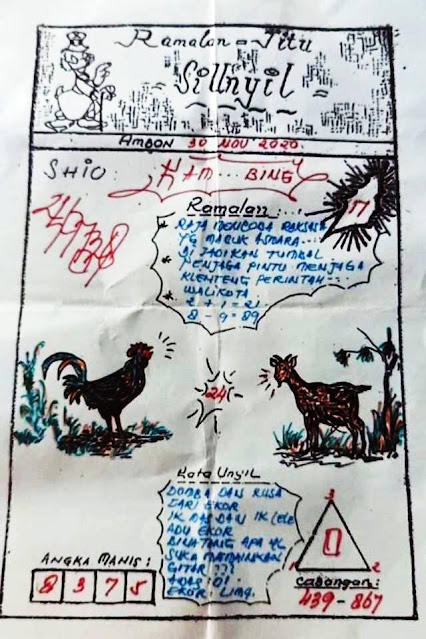 Ramalan = Jitu
SiUnyil
AMBON 30 NOV 2020
SHIO:
KAM... BING
17
Ramalan:
RAJA MENCOBA RAKSASA
YG MABUK ASMARA
DI JADIKAN TUMBAL
PENJAGA PINTU MENJAGA
KLENTENG PERINTAH
WALIKOTA
2 + 1 = 21
8 - 9 = 89
24
Kata Unyil
DOMBA DAN RUSA
CARI EKOR
IKAN MAS DAN IK. lele
ADU EKOR
BINATANG APA YG
SUKA MEMAINKAN
GITAR ???
EKOR
ANGKA MANIS:
8 3 7 5
3
0
1 2
Cabangan:
439 - 867